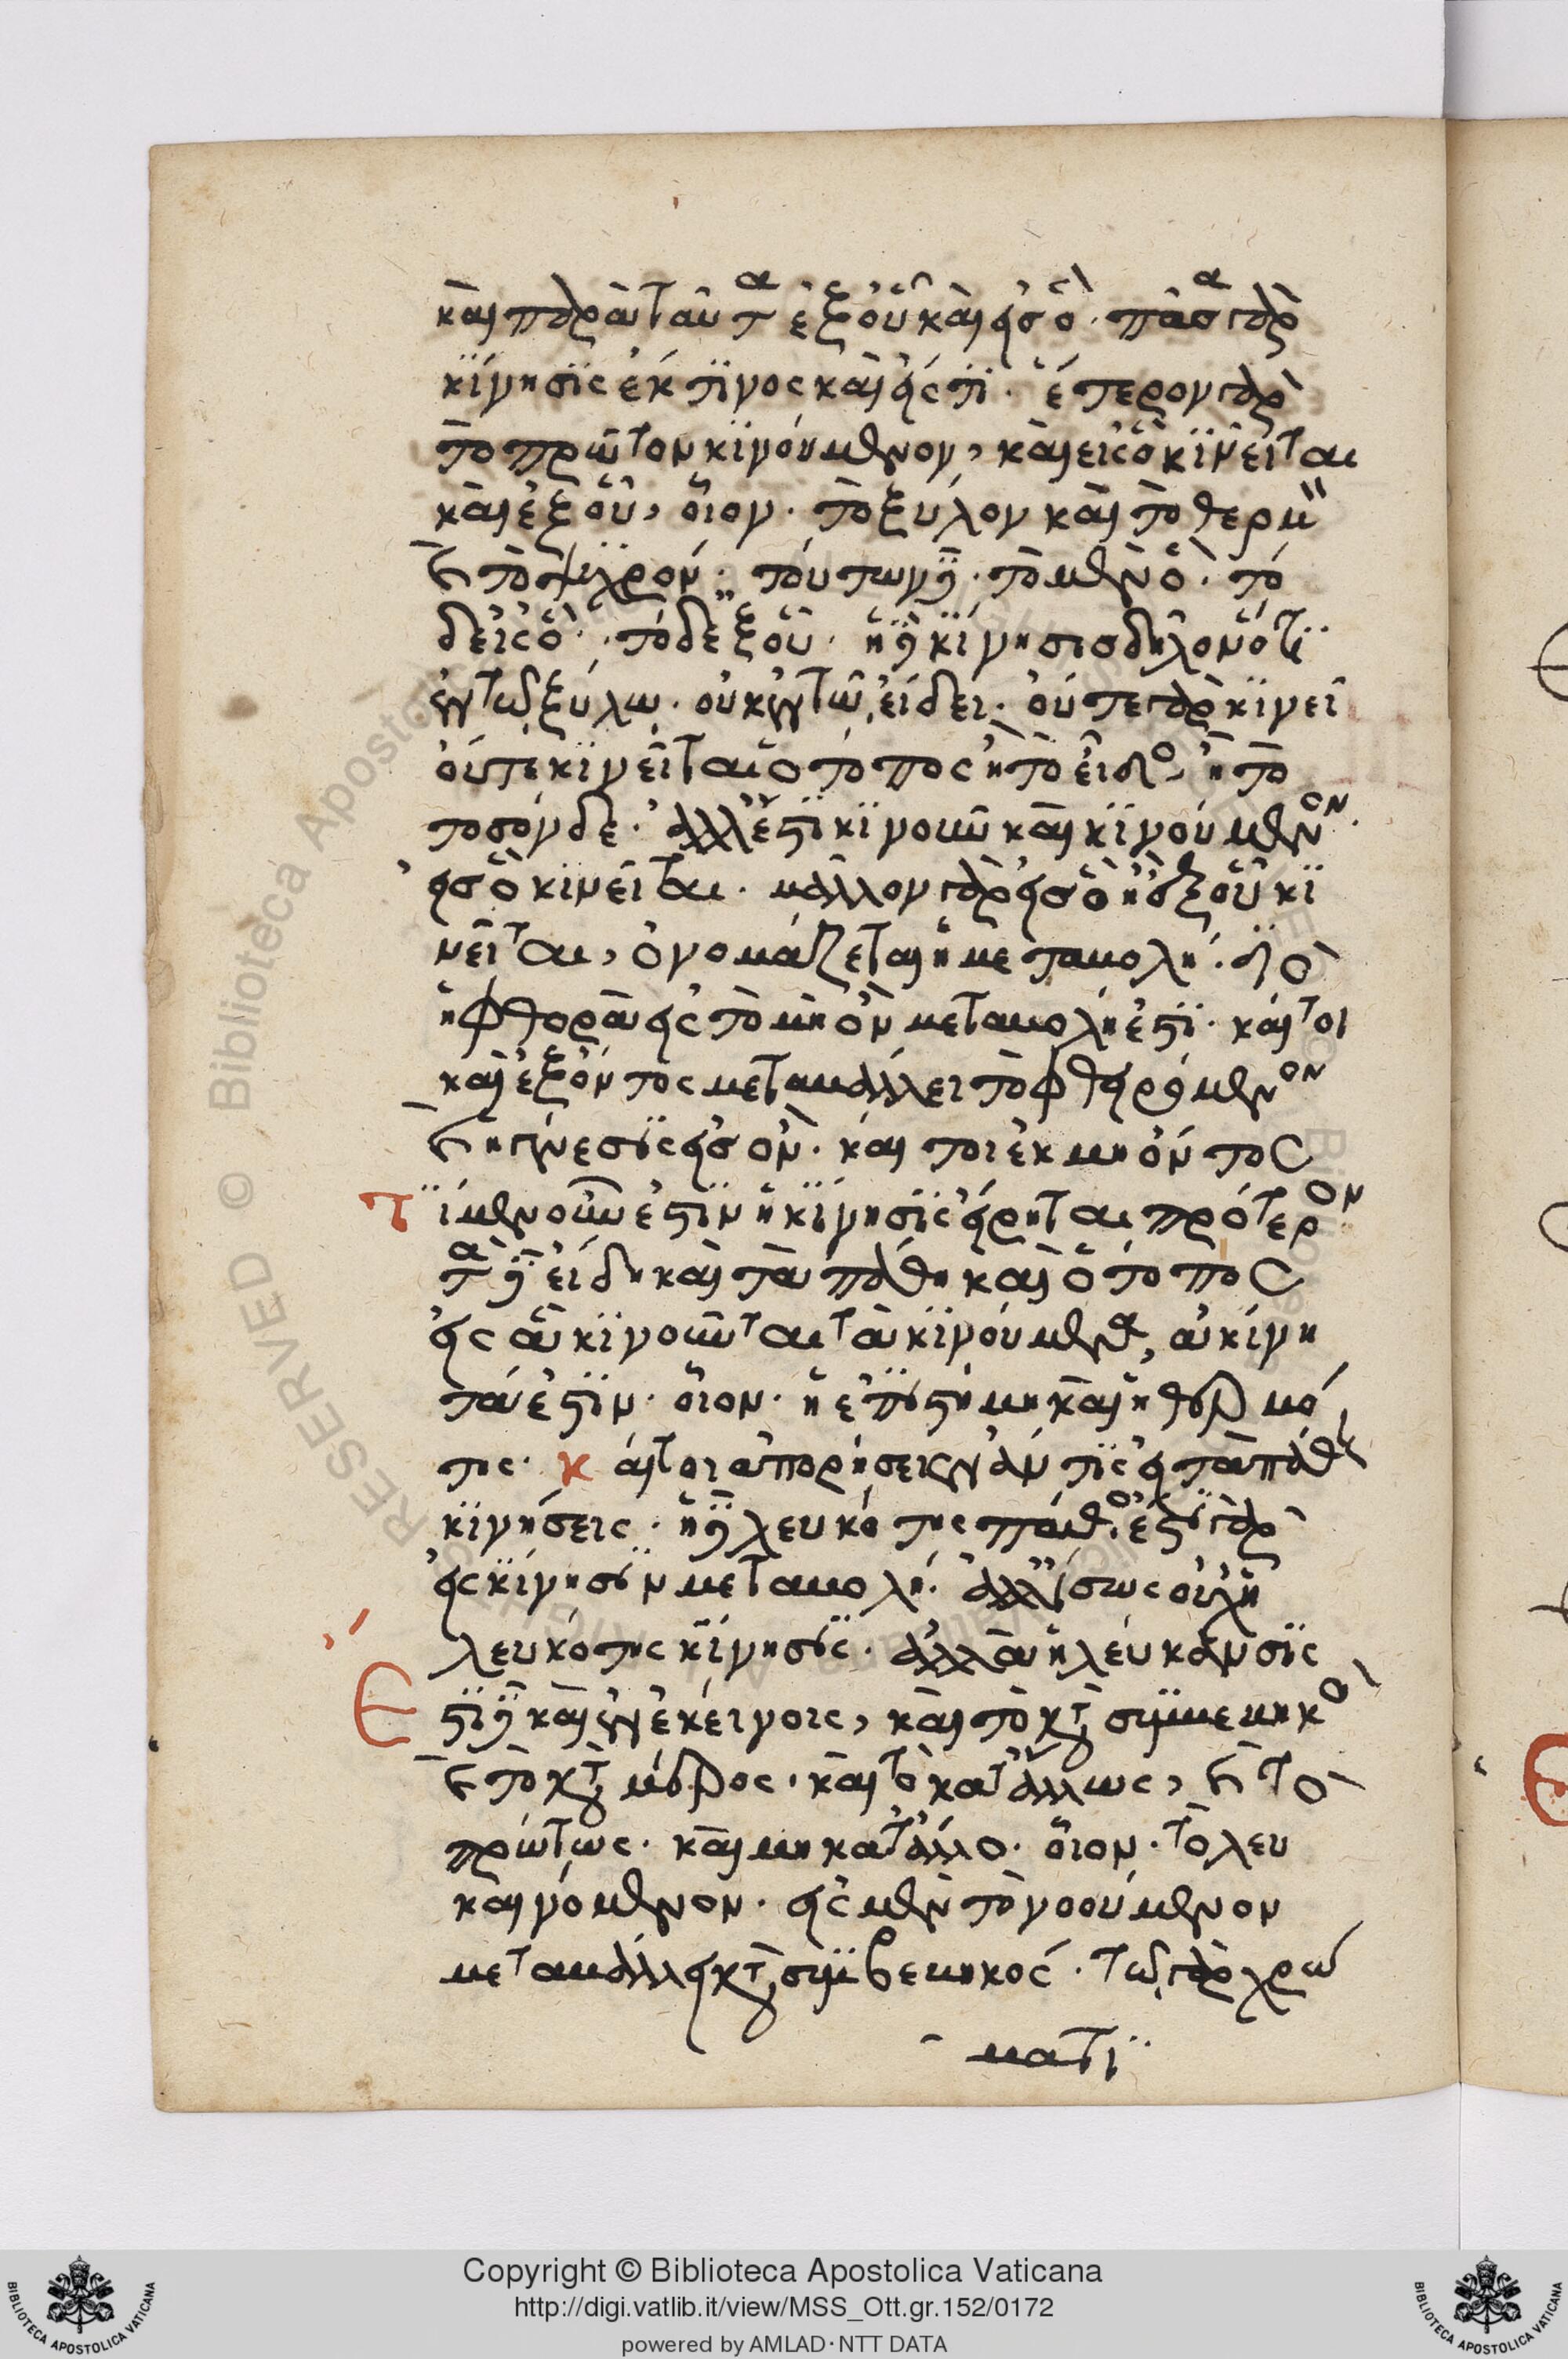 καὶ παρὰ ταῦτα ἐξ οὗ καὶ εἰς ὅ· πᾶσα γὰρ
κίνησις ἔκ τινος καὶ εἴς τι· ἕτερον γὰρ
τὸ πρῶτον κινούμενον, καὶ εἰς ὃ κινεῖται
καὶ ἐξ οὗ, οἷον· τὸ ξύλον καὶ τὸ θερμὸν
καὶ τὸ ψυχρόν· τούτων δὲ· τὸ μὲν ὅ· τὸ
δ εἰς ὅ· τὸ δ ἐξ οὗ· ἡ δὲ κίνησις δηλονότι
ἐν τῷ ξύλῳ· οὐκ ἐν τῷ εἴδει· οὔτε γὰρ κινεῖ
οὔτε κινεῖται ὁ τόπος ἢ τὸ εἶδος, ἢ τὸ
τοσόνδε· ἀλλ ἔστι κινοῦν καὶ κινούμενον·
εἰς ὃ κινεῖται· μᾶλλον γὰρ εἰς ὃ ἢ ἐξ οὗ κι
νεῖται, ὀνομάζεται ἡ μεταβολή· διὸ
ἡ φθορὰ εἰς τὸ μὴ ὂν μεταβολή ἐστι· καίτοι
καὶ ἐξ ὄντος μεταβάλλει τὸ φθειρόμενον
καὶ ἡ γένεσις εἰς ὄν· καίτοι ἐκ μὴ ὄντος
Τί μὲν οὖν ἐστιν ἡ κίνησις εἴρηται πρότερον·
τὰ δὲ εἴδη καὶ τὰ πάθη καὶ ὁ τόπος
εἰς ἃ κινοῦνται τὰ κινούμενα, ἀκίνη
τά ἐστιν· οἷον· ἡ ἐπιστήμη καὶ ἡ θερμό
της· καίτοι ἀπορήσειεν ἄν τις εἰ τὰ πάθη
κινήσεις· ἡ δὲ λευκότης πάθος· ἔσται γὰρ
εἰς κίνησιν μεταβολή· ἀλλ ἴσως οὐχ ἡ
λευκότης κίνησις· ἀλλὰ ἡ λεύκανσις
Ἔστι δὲ καὶ ἐν ἐκείνοις, καὶ τὸ κατὰ συμβεβηκὸς
καὶ τὸ κατὰ μέρος· καὶ τὸ κατ ἄλλως, καὶ τὸ
πρώτως· καὶ μὴ κατ ἄλλο· οἷον· τὸ λευ
καινόμενον· εἰς μὲν τὸ νοούμενον
μεταβάλλει κατὰ συμβεβηκός· τῷ γὰρ χρώ
ματι
Copyright © Biblioteca Apostolica Vaticana
http://digi.vatlib.it/view/MSS_Ott.gr.152/0172
powered by AMLAD·NTT DATA